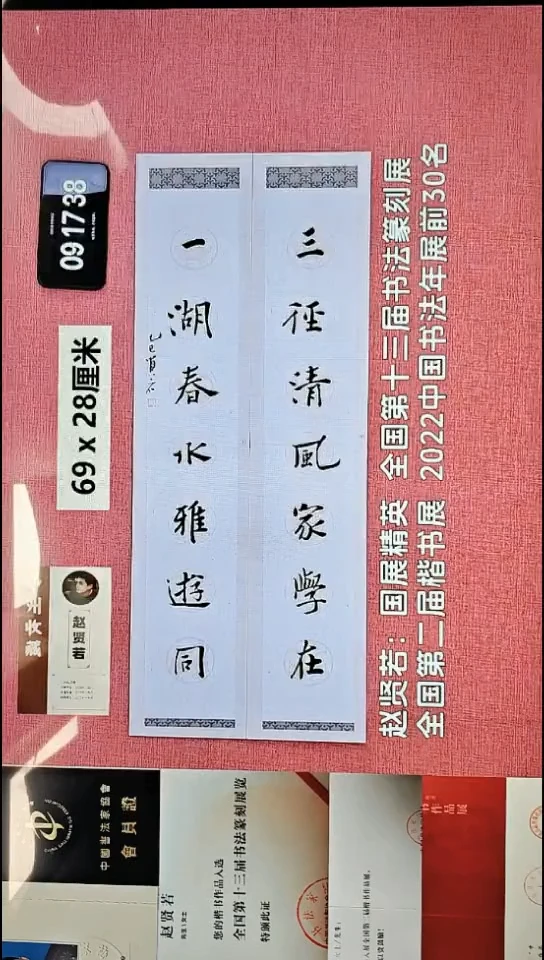 三徑清風家學在
一湖春水雅遊同
乙巳賢若
赵贤若：国展精英 全国第十三届书法篆刻展
全国第二届楷书展 2022中国书法年展前30名
69 x 28厘米
09 17 38
赵贤若
中國書法家協會
會員證
赵贤若
您的楷书作品入选
全国第十三届书法篆刻展览
特颁此证
作品展